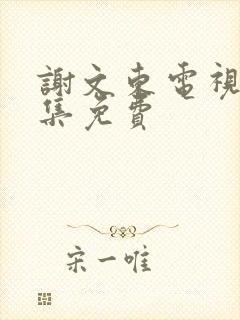 謝文東電視
集免費
宋一唯